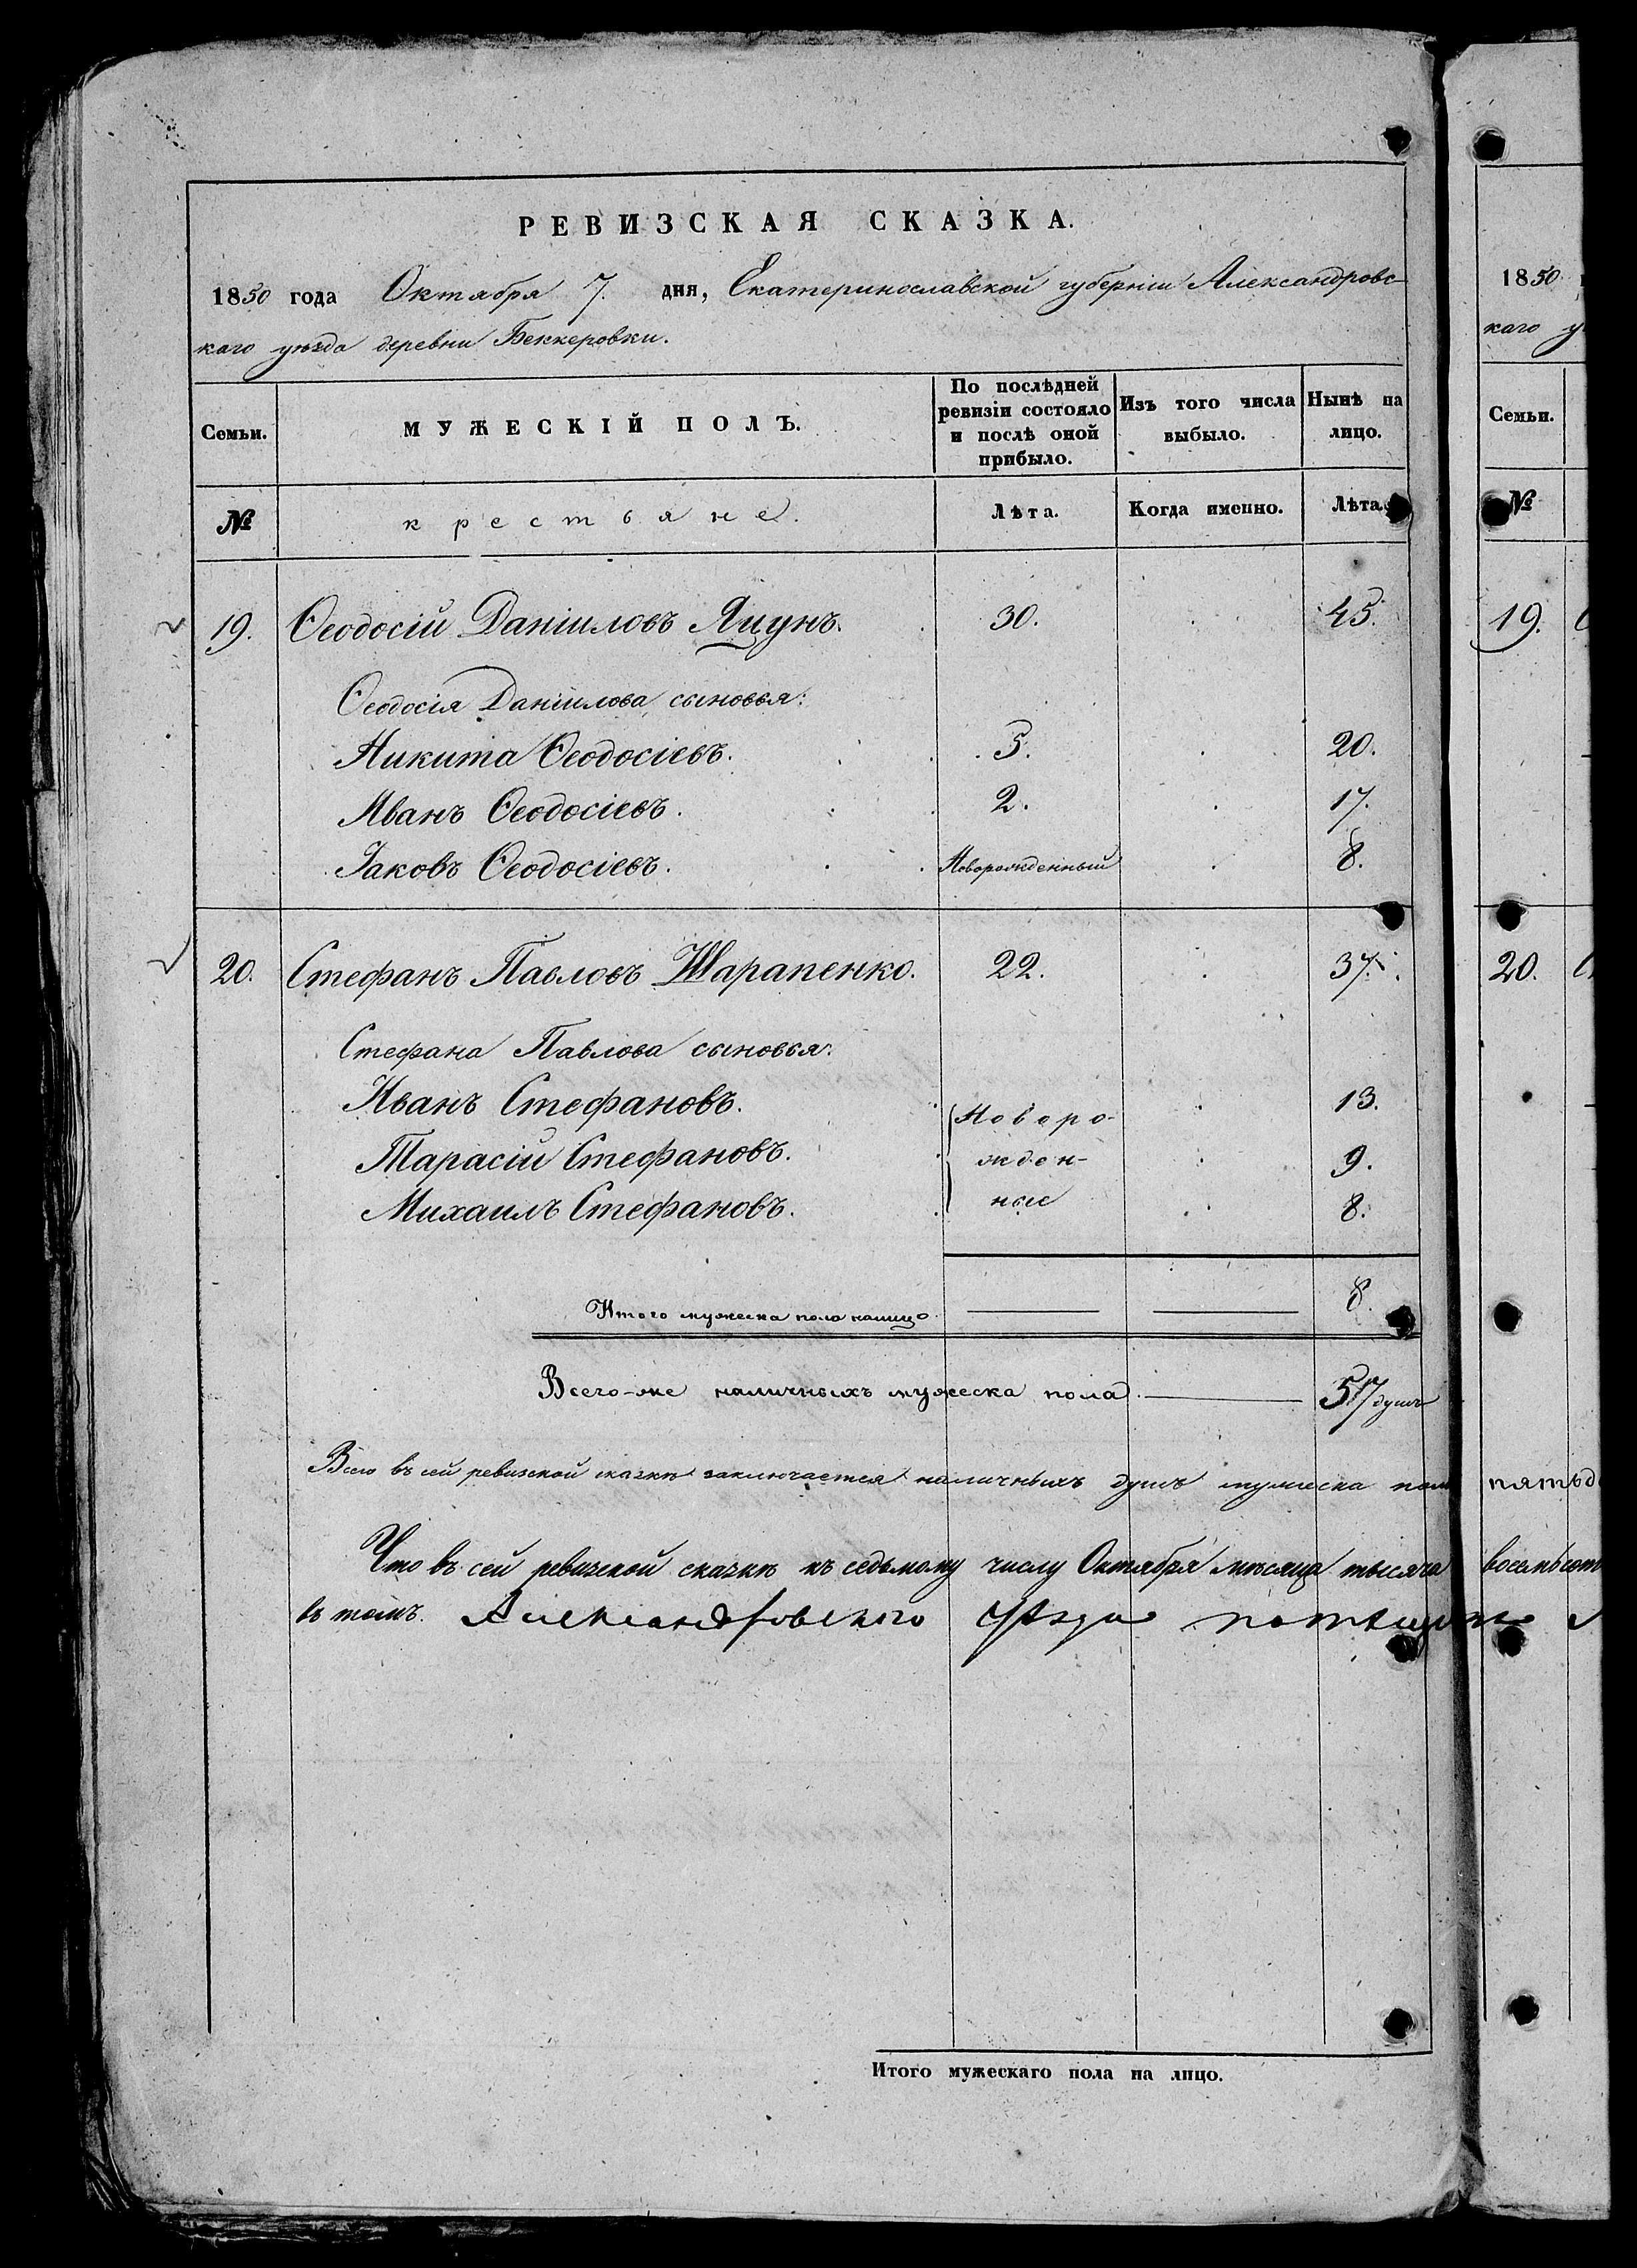 РЕВИЗСКАЯ СКАЗКА.
1850 года Октября 7. дня, Екатеринославской губерніи Александровс-
каго уѣзда деревни Беккеровки.
Семьи.
МУЖЕСКІЙ ПОЛЪ.
По послѣдней ревизіи состояло и послѣ оной прибыло.
Изъ того числа выбыло.
Нынѣ на лицо.
№
крестьяне.
Лѣта.
Когда именно.
Лѣта.
19. Ѳеодосій Даніиловъ Яцунъ. 30. 45.
Ѳеодосія Даніилова сыновья:
Никита Ѳеодосіевъ. 5. 20.
Иванъ Ѳеодосіевъ. 2. 17.
Іаковъ Ѳеодосіевъ. Новорожденный 8.
20. Стефанъ Павловъ Шарапенко. 22. 37.
Стефана Павлова сыновья:
Иванъ Стефановъ. Новоро- 13.
Тарасій Стефановъ. жден- 9.
Михаилъ Стефановъ. ные 8.
Итого мужеска пола налицо 8.
Всего-же наличныхъ мужеска пола. 57 душъ
Всего въ сей ревизской сказкѣ заключается наличныхъ душъ мужеска пола
Что въ сей ревизской сказкѣ къ седьмому числу Октября мѣсяца тысяча
въ томъ. Александровского уѣзда помѣщикъ
Итого мужескаго пола на лицо.
1850
каго
Семьи.
№
19.
20.